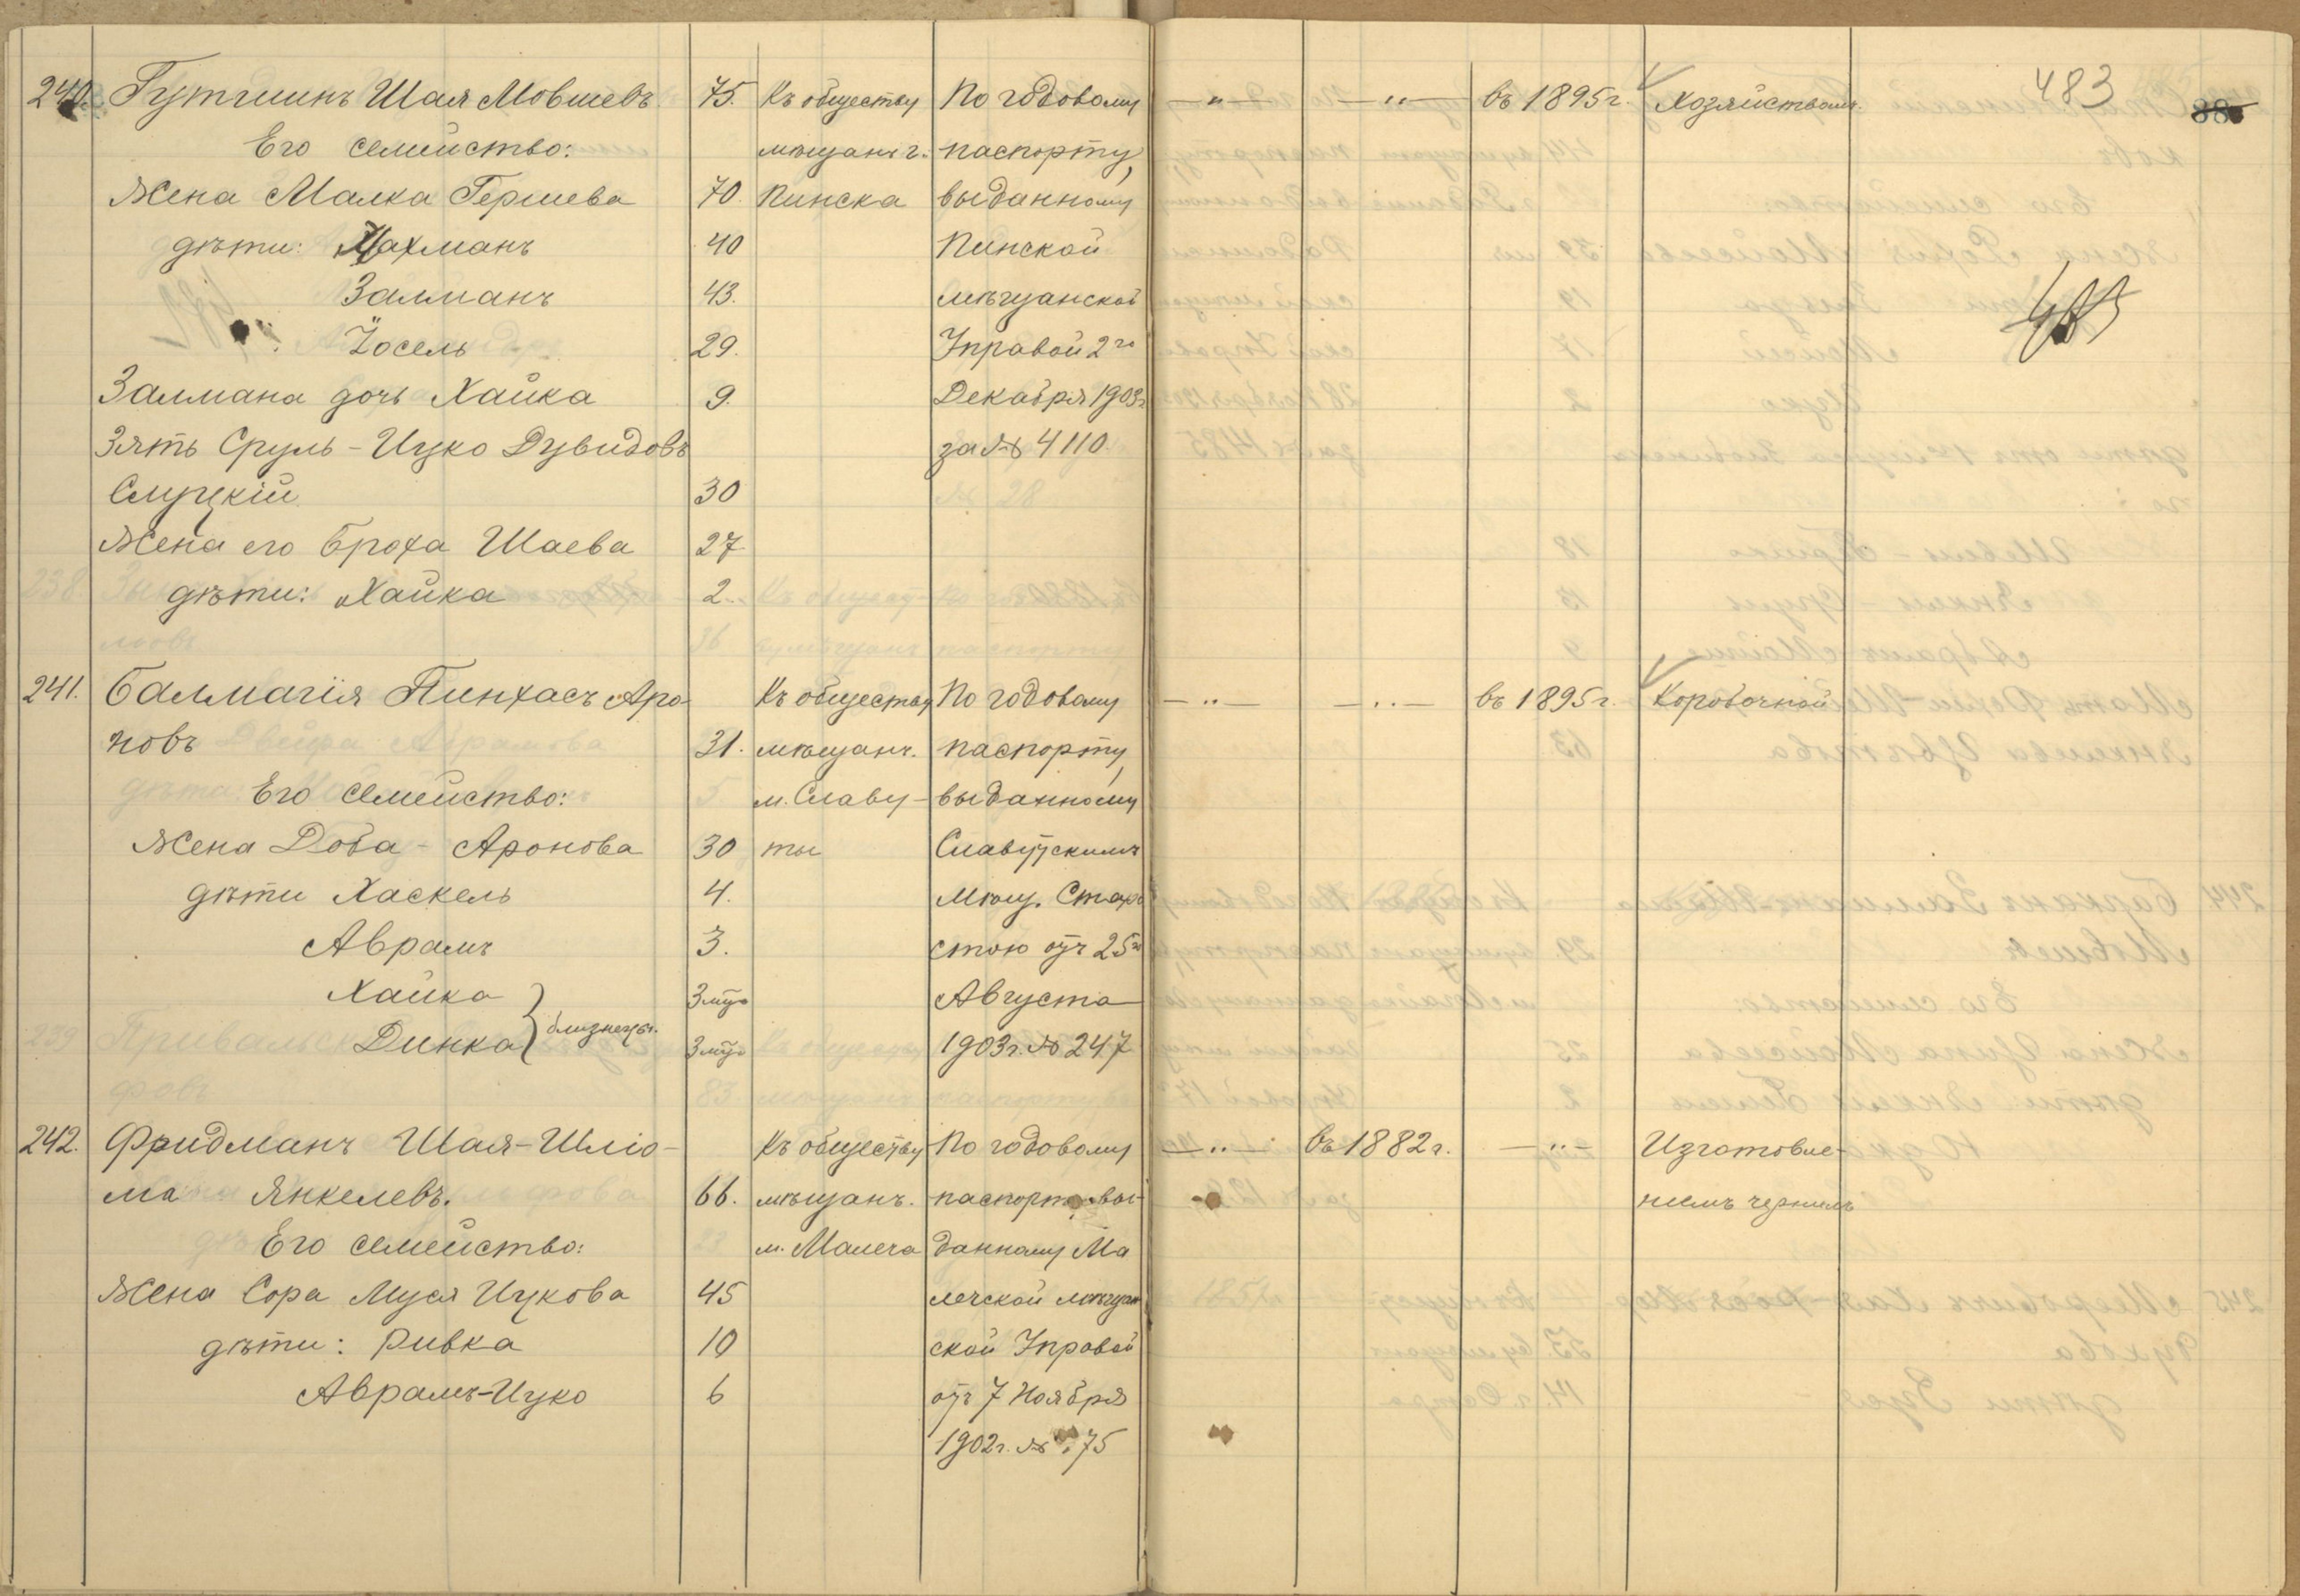 483
240. Гутманъ Шая Мовшевъ 75. Къ обществу По годовому —„— —„— въ 1895 г. Хозяйствомъ.
Его семейство: мѣщанъ г. паспорту,
Жена Малка Гершева 70. Пинска выданному
дѣти: Нахманъ 40 Пинской
Залманъ 43. мѣщанской
Іосель 29. Управой 2го
Залмана дочь Хайка 9. Декабря 1903 г.
Зять Сруль-Ицко Дувидовъ за № 4110.
Слуцкій 30
Жена его Броха Шаева 27
дѣти: Хайка 2.
241. Балмагія Пинхасъ Аро- Къ обществу По годовому —„— —„— въ 1895 г. Коробочной
новъ 31. мѣщанъ. паспорту,
Его семейство: м. Славу- выданному
Жена Доба - Аронова 30 ты Славутскимъ
дѣти Хаскель 4. Мѣщ. Старо
Аврамъ 3. стою отъ 25го
Хайка } 3 мѣс Августа
Динка } близнецы. 3 мѣс 1903 г. № 247
242. Фридманъ Шая-Шліо- Къ обществу По годовому —„— въ 1882 г. —„— Изготовле-
ма Янкелевъ. 66. мѣщанъ. паспорту вы- ніемъ чернилъ
Его семейство: м. Малеча данному Ма
Жена Сора Муся Ицкова 45 лечской мѣщан
дѣти: Ривка 10 ской Управой
Аврамъ-Ицко 6 отъ 7 Ноября
1902 г. № 75